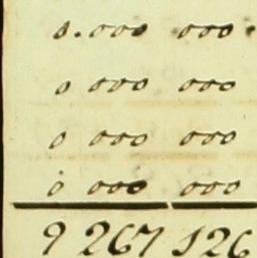 0.000 000.
0 000 000
0 000 000
0 000 000
9 267 126